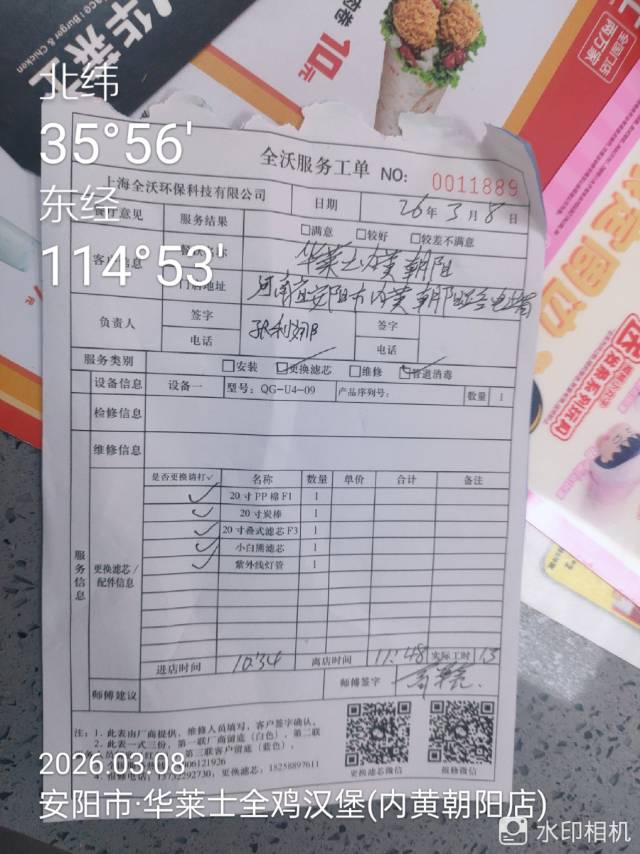 华莱士
Burger & Chicken
10元
全国门店
两万家
北纬
35°56'
东经
114°53'
全沃服务工单 NO: 0011889
上海全沃环保科技有限公司 日期 26年3月8日
意见 服务结果 □满意 □较好 □较差不满意
客户信息 华莱士内黄朝阳
地址 河南省安阳市内黄朝阳路
负责人 签字 签字
电话 电话
服务类别 □安装 □更换滤芯 □维修 □管道消毒
设备信息 设备一 型号: QG-U4-09 产品序列号: 数量 1
检修信息
维修信息
服务信息 更换滤芯/配件信息
是否更换请打✓ 名称 数量 单价 合计 备注
✓ 20寸PP棉F1 1
✓ 20寸炭棒 1
✓ 20寸叠式滤芯F3 1
✓ 小白熊滤芯 1
✓ 紫外线灯管 1
进店时间 10:34 离店时间 11:48 实际工时 1.3
师傅建议 师傅签字
注: 1. 此表由厂商提供, 维修人员填写, 客户签字确认。
2. 此表一式三份, 第一联厂商留底(白色), 第二联
第三联客户留底(蓝色),
4. 报修电话: 更换滤芯: 18258897611
更换滤芯微信 报修微信
2026.03.08
安阳市·华莱士全鸡汉堡(内黄朝阳店)
水印相机